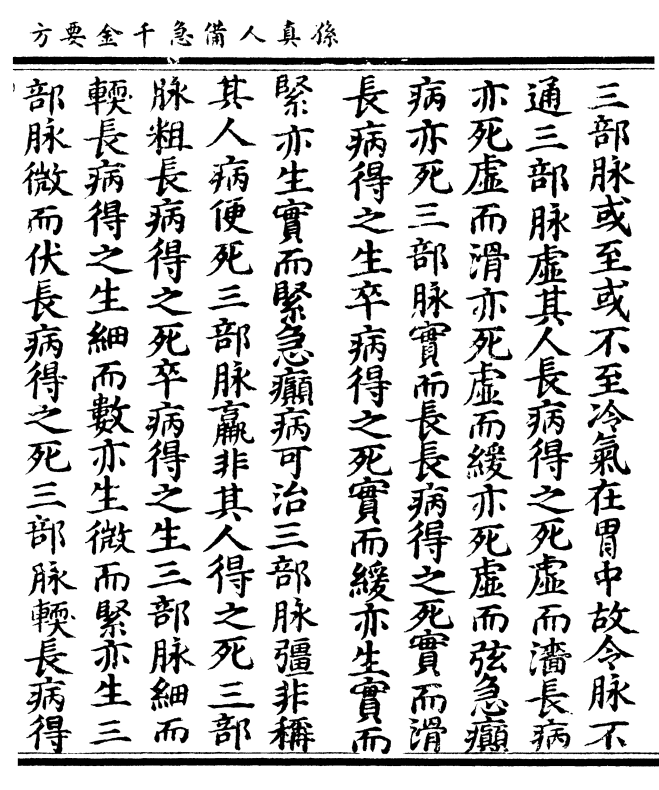 孫真人備急千金要方
三部脉或至或不至冷氣在胃中故令脉不
通三部脉虛其人長病得之死虛而濇長病
亦死虛而滑亦死虛而緩亦死虛而弦急癲
病亦死三部脉實而長長病得之死實而滑
長病得之生卒病得之死實而緩亦生實而
緊亦生實而緊急癲病可治三部脉彊非稱
其人病便死三部脉羸非其人得之死三部
脉粗長病得之死卒病得之生三部脉細而
輭長病得之生細而數亦生微而緊亦生三
部脉微而伏長病得之死三部脉輭長病得